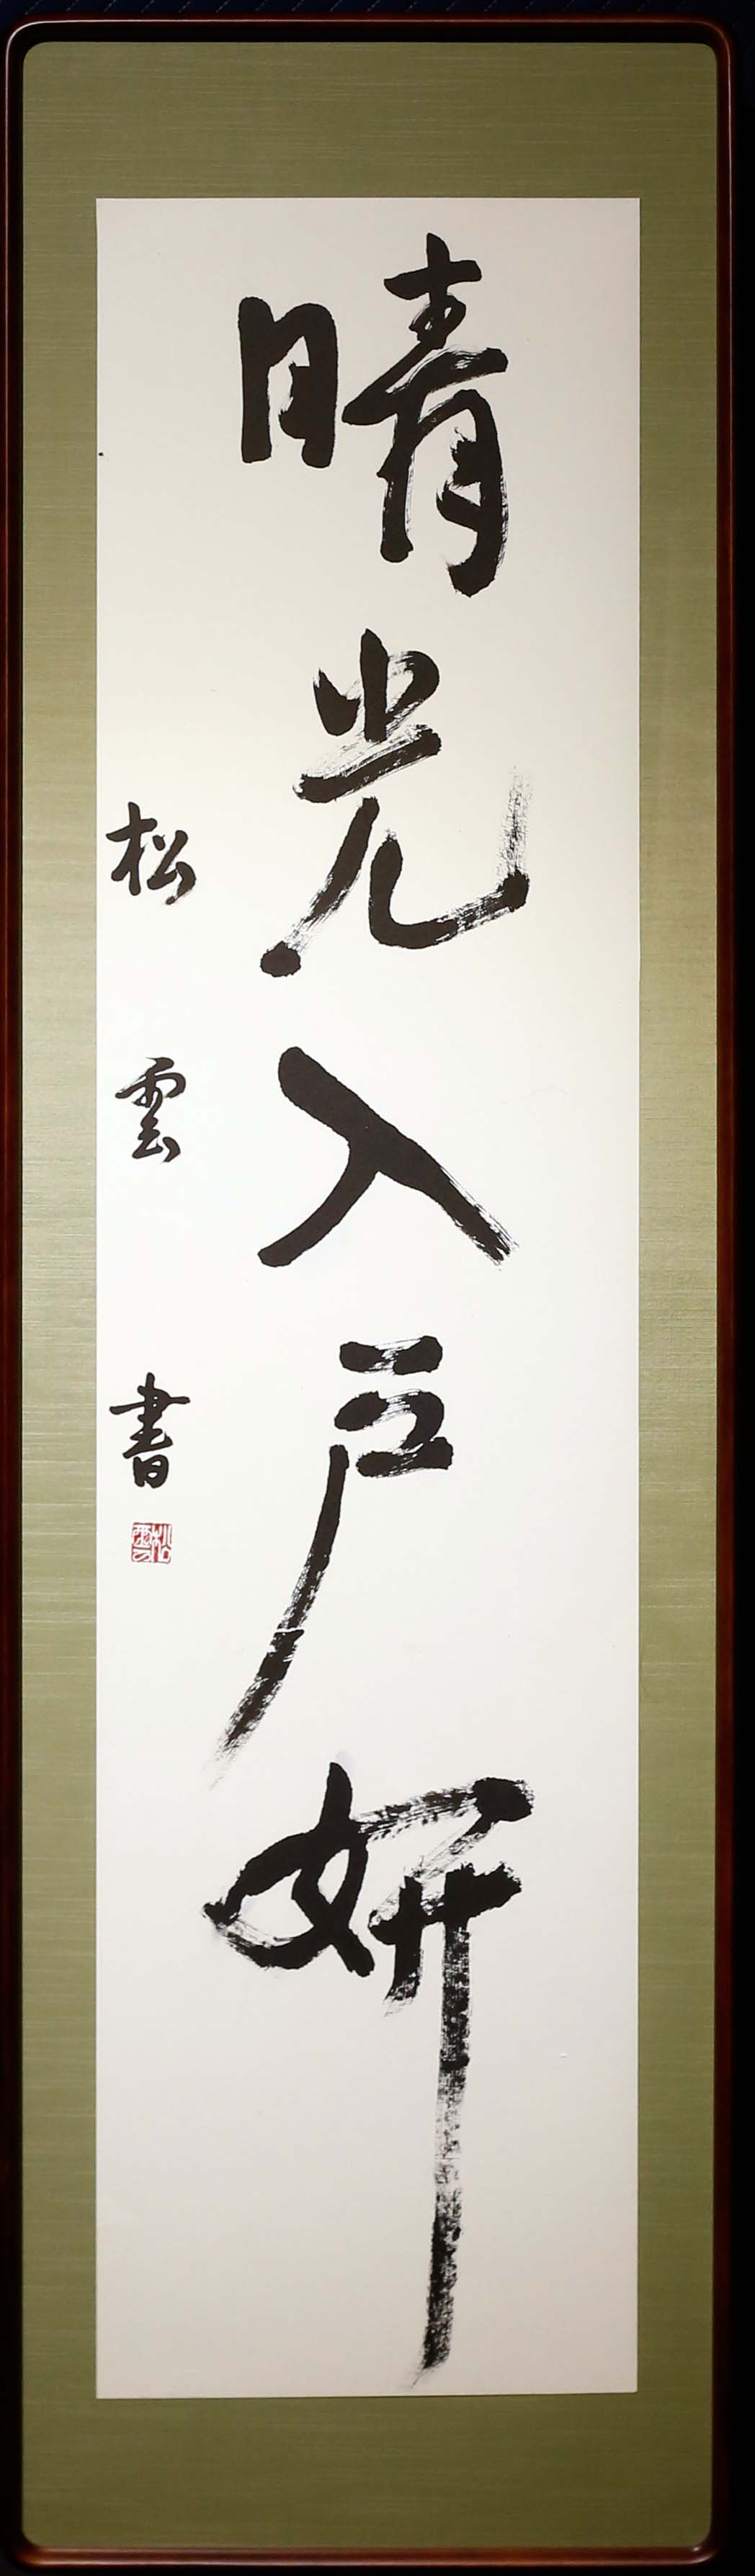 晴光入戸妍
松雲書
松雲